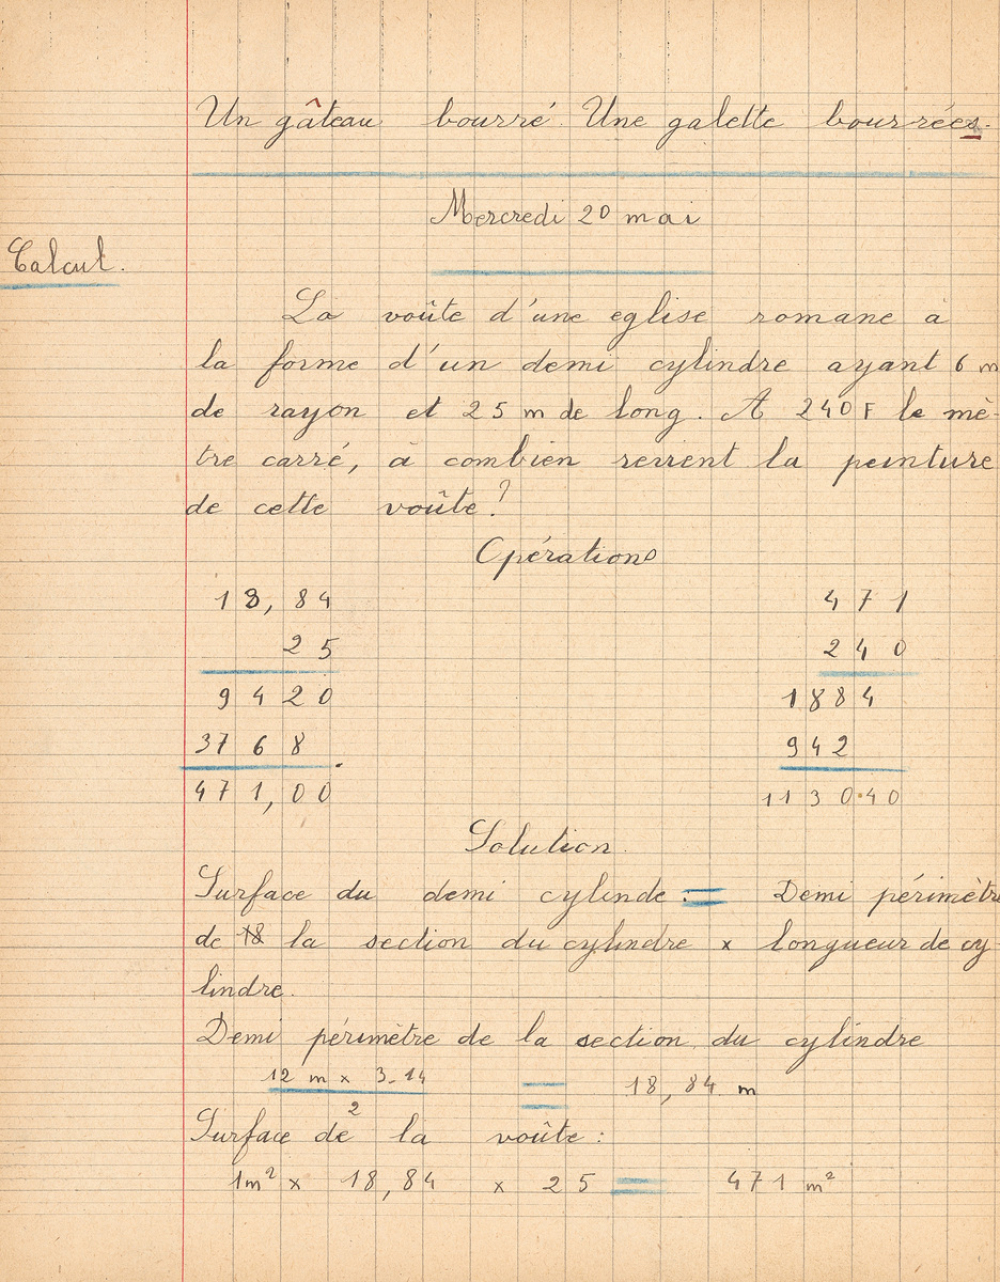 Un gâteau bourré. Une galette bourrées.
Mercredi 20 mai
Calcul.
La voûte d'une eglise romane a
la forme d'un demi cylindre ayant 6 m
de rayon et 25 m de long. A 240 F le mè-
tre carré, à combien revient la peinture
de cette voûte ?
Opérations
18,84 471
25 240
9420 1884
3768 942
471,00 113040
Solution
Surface du demi cylinde : = Demi périmètre
de la section du cylindre x longueur de cy-
lindre.
Demi périmètre de la section du cylindre
12 m x 3.14 = 18,84 m
2
Surface de la voûte :
1m² x 18,84 x 25 = 471 m²